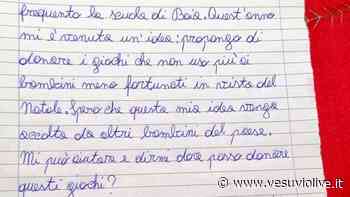 frequento la scuola di Baia. Quest'anno
mi è venuta un'idea: propongo di
donare i giochi che non uso più ai
bambini meno fortunati in vista del
Natale. Spero che questa mia idea venga
accolta da altri bambini del paese.
Mi può aiutare e dirmi dove posso donare
questi giochi?
www.vesuviolive.it